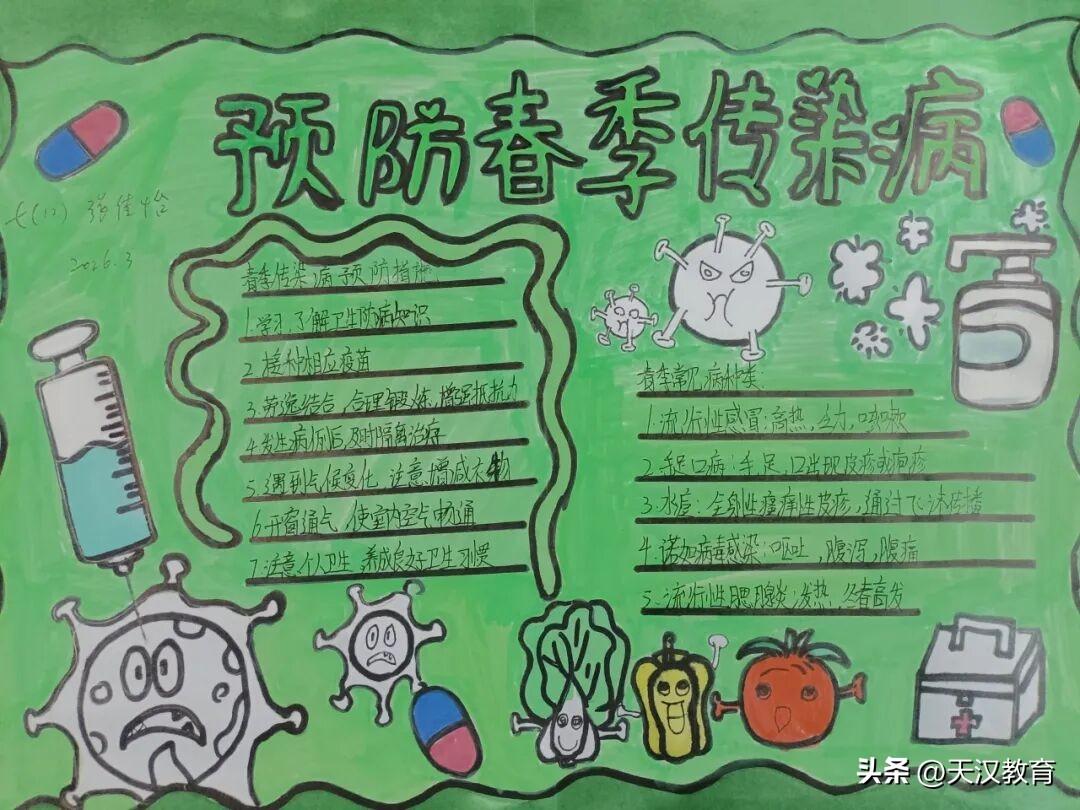 预防春季传染病
七(12) 张佳怡
2026.3
春季传染病预防措施:
1.学习,了解卫生防病知识
2.接种相应疫苗
3.劳逸结合,合理锻炼,增强抵抗力
4.发生病例后及时隔离治疗
5.遇到气候变化,注意增减衣物
6.开窗通气,使室内空气畅通
7.注意个人卫生,养成良好卫生习惯
春季常见病种类:
1.流行性感冒:高热,乏力,咳嗽
2.手足口病:手,足,口出现皮疹或疱疹
3.水痘:全身性瘙痒性皮疹,通过飞沫传播
4.诺如病毒感染:呕吐,腹泻,腹痛
5.流行性腮腺炎:发热,冬春高发
头条 @天汉教育